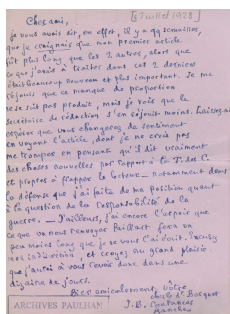 [5 Juillet 1928]
Cher ami,
je vous avais dit, en effet, il y a qq semaines,
que je craignais que mon premier article
fût plus long que les 2 autres, alors que
ce que j'avais à traiter dans ces 2 derniers
était beaucoup nouveau et plus important. Je me
réjouis que ce manque de proportion
ne se soit pas produit, mais je vois que le
secrétaire de rédaction s'en réjouit moins. Laissez-moi
espérer que vous changerez de sentiment
en voyant l'article, dont je ne crois pas
me tromper en pensant qu'il dit vraiment
des choses nouvelles par rapport à la T. des C.
et propres à frapper le lecteur - notamment dans
la défense que j'ai faite de ma position quant
à la question de la responsabilité de la
guerre. - D'ailleurs, j'ai encore l'espoir que
ce que va nous renvoyer Paillart fera un
peu moins long que je ne vous l'ai écrit. Excusez
mon indiscrétion, et croyez au grand plaisir
que j'aurai à vous revoir donc dans une
dizaine de jours.
Bien amicalement, votre
ARCHIVES PAULHAN
J. B. Coutances
Manche